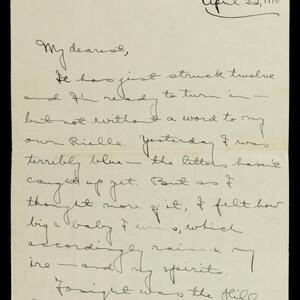 April 22, 1918
My dearest,
It has just struck twelve
and I'm ready to turn in —
but not without a word to my
own Rielle. Yesterday I was
terribly blue — the letters haven't
caught up yet. But as I
thought more of it, I felt how
big a baby I was, which
accordingly raised my
ire — and my spirits.
Tonight was the Hill